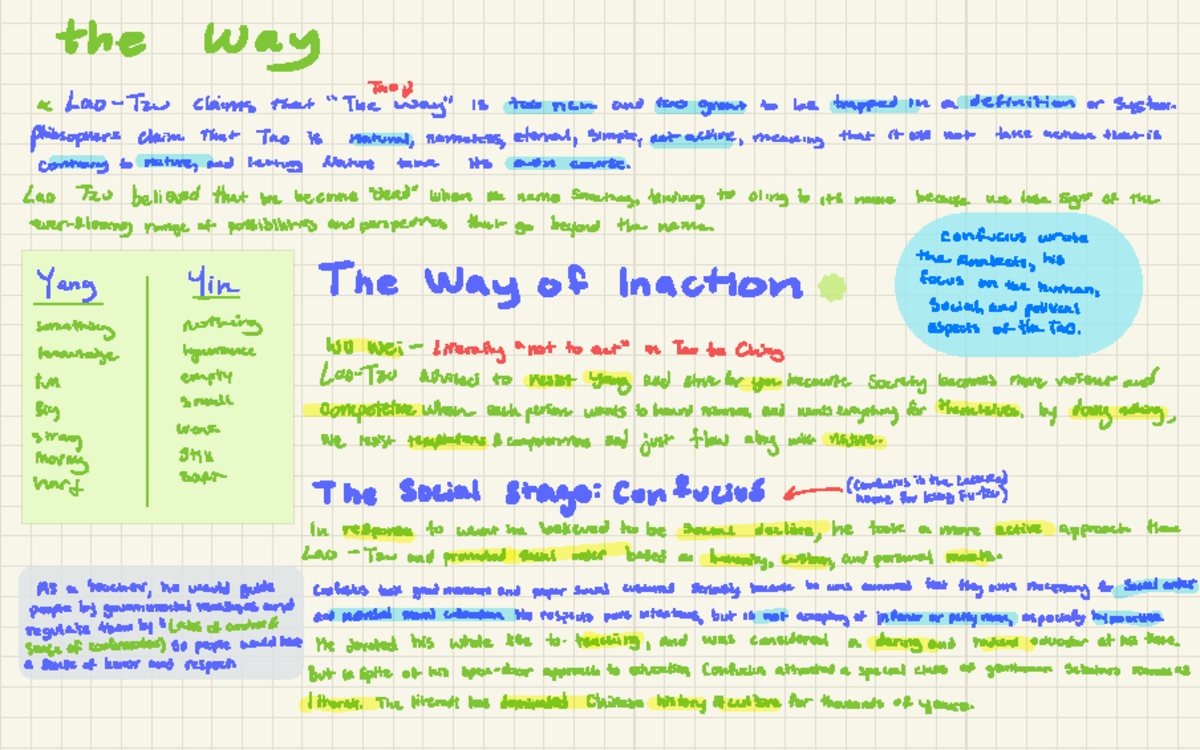 the Way
Tao
Lao-Tzu claims that "The Way" is too new and too great to be trapped in a definition or system.
Philosophers claim that Tao is natural, nameless, eternal, simple, not active, meaning that it will not take actions that is
contrary to nature, and letting Nature take its own course.
Lao Tzu believed that we become "dead" when we name something, tending to cling to its name because we lose sign of the
ever-flowing range of possibilities and perspectives that go beyond the name.
Yang Yin
something nothing
knowledge ignorance
full empty
Big small
strong weak
moving still
hard soft
Confucius wrote
the Analects, his
focus on the human,
Social, and political
aspects of the Tao.
The Way of Inaction
Wu Wei - Literally "not to act" in Tao te Ching
Lao-Tzu advised to resist Yang and strive for yin because Society becomes more and
competitive when each person wants to and wants everything for themselves. by doing nothing,
We resist temptations & and just flow along with nature.
The Social Stage: Confucius
(Confucius is the Latinized
name for Kung Fu-tzu)
In response to what he believed to be social decline, he took a more active approach than
Lao-Tzu and promoted social order based on humanity, custom, and personal morals.
Confucius took good manners and proper social customs seriously because he was convinced that they were necessary for social order
and moral The respects pure intentions, but is not accepting of especially hypocrites
He devoted his whole life to teaching, and was considered a daring and radical educator at his time.
But in spite of his open-door approach to education, Confucius attracted a special class of gentleman Scholars known as
literati. The literati has dominated Chinese history & culture for thousands of years.
As a teacher, he would guide
people by governmental measures and
regulate them by (Laws of control &
sense of ) so people would have
a sense of honor and respect